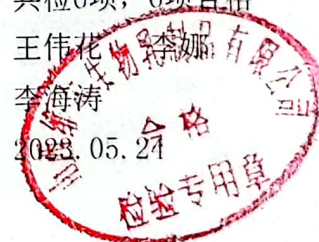 共检6项，6项合格
王伟花 李娜
李海涛
2023.05.24
生物制品有限公司
合格
检验专用章